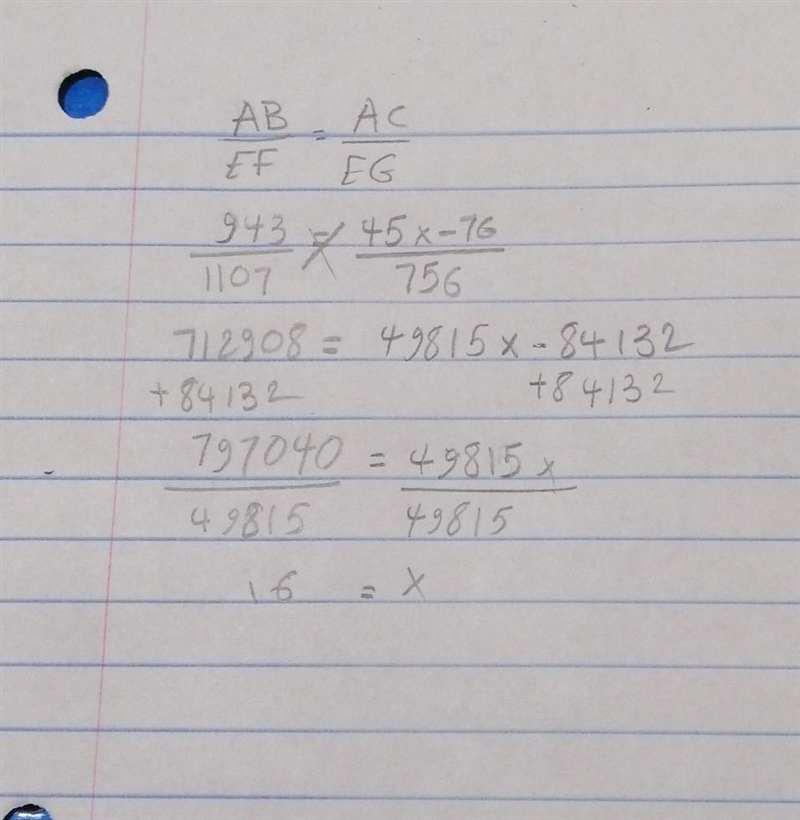 AB/EF = AC/EG
943/1107 = 45x-76/756
712908 = 49815x - 84132
+84132 +84132
797040/49815 = 49815x/49815
16 = x